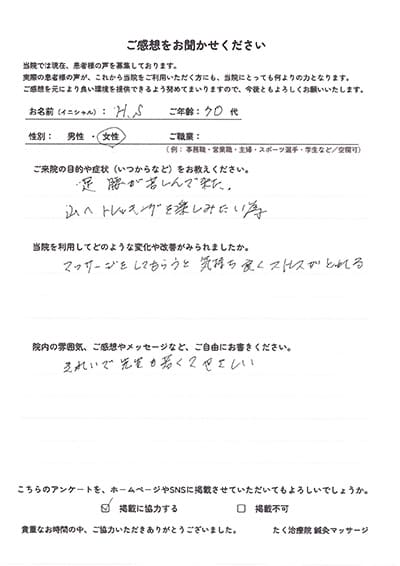 ご感想をお聞かせください
当院では現在、患者様の声を募集しております。
実際の患者様の声が、これから当院をご利用いただく方にも、当院にとっても何よりの力となります。
ご感想を元により良い環境を提供できるよう努めてまいりますので、今後ともよろしくお願いいたします。
お名前（イニシャル）： H.S ご年齢： 70 代
性別： 男性 ・ 女性 ご職業：
（例： 事務職・営業職・主婦・スポーツ選手・学生など／空欄可）
ご来院の目的や症状（いつからなど）をお教えください。
足 腰が苦しんで来た.
山へトレッキングを楽しみたい為
当院を利用してどのような変化や改善がみられましたか。
マッサージをしてもらうと 気持ち良くストレスがとれる
院内の雰囲気、ご感想やメッセージなど、ご自由にお書きください。
きれいで先生も若くてやさしい
こちらのアンケートを、ホームページやSNSに掲載させていただいてもよろしいでしょうか。
☑ 掲載に協力する □ 掲載不可
貴重なお時間の中、ご協力いただきありがとうございました。 たく治療院 鍼灸マッサージ